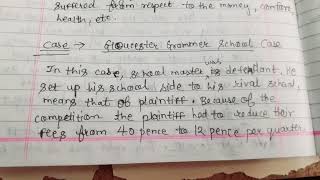 suffered from respect to the money, comfort
health, etc.
Case → Gloucester Grammer School Case
In this case, school master was defendant. He
set up his school side to his rival school,
means that of plaintiff. Because of the
competition the plaintiff had to reduce their
fees from 40 pence to 12 pence per quarter.